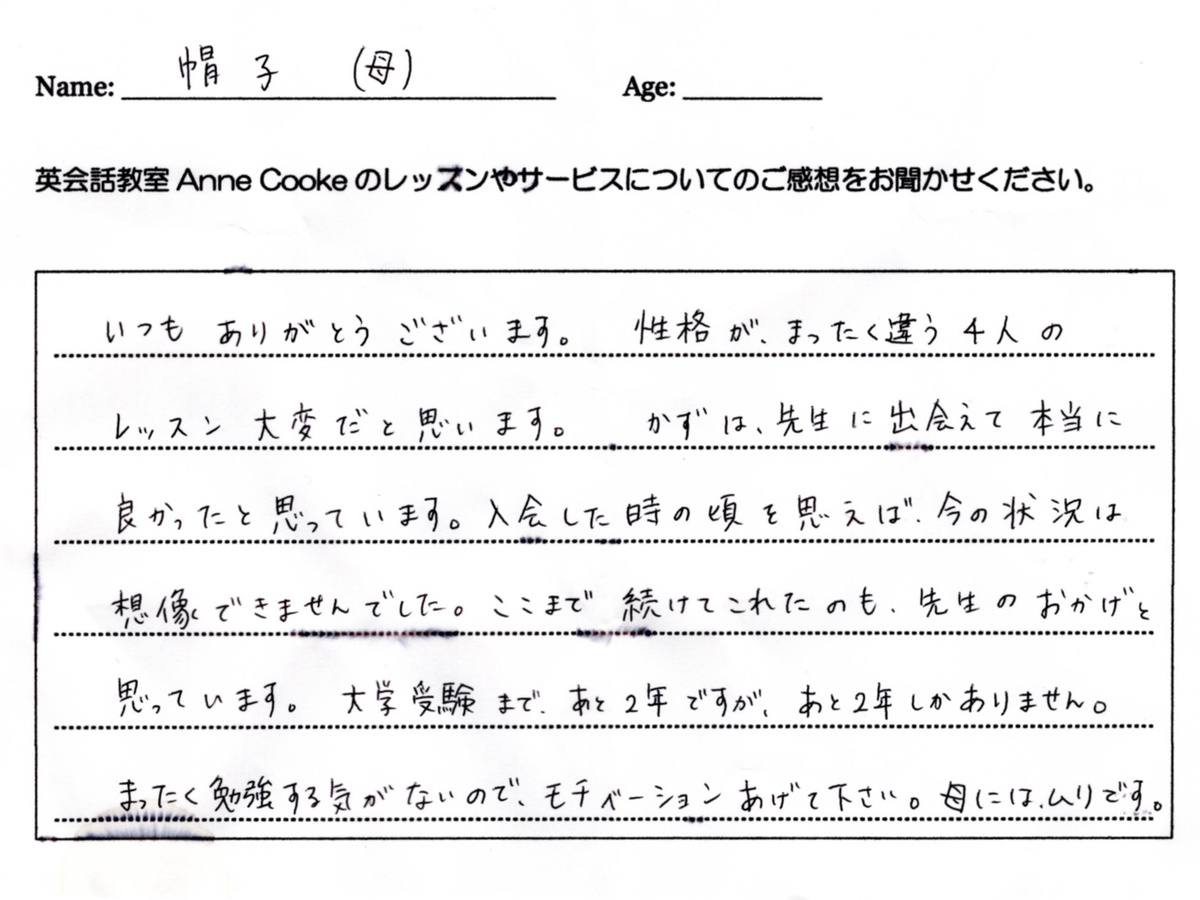 Name: 帽子 (母) Age:
英会話教室 Anne Cooke のレッスンやサービスについてのご感想をお聞かせください。
いつも ありがとう ございます。 性格が、まったく違う 4人の
レッスン 大変だと思います。 かずは、先生に出会えて 本当に
良かったと思っています。入会した時の頃を思えば、今の状況は
想像できませんでした。ここまで 続けてこれたのも、先生のおかげと
思っています。 大学受験まで、あと2年ですが、あと2年しかありません。
まったく勉強する気がないので、モチベーションあげて下さい。母には、ムリです。